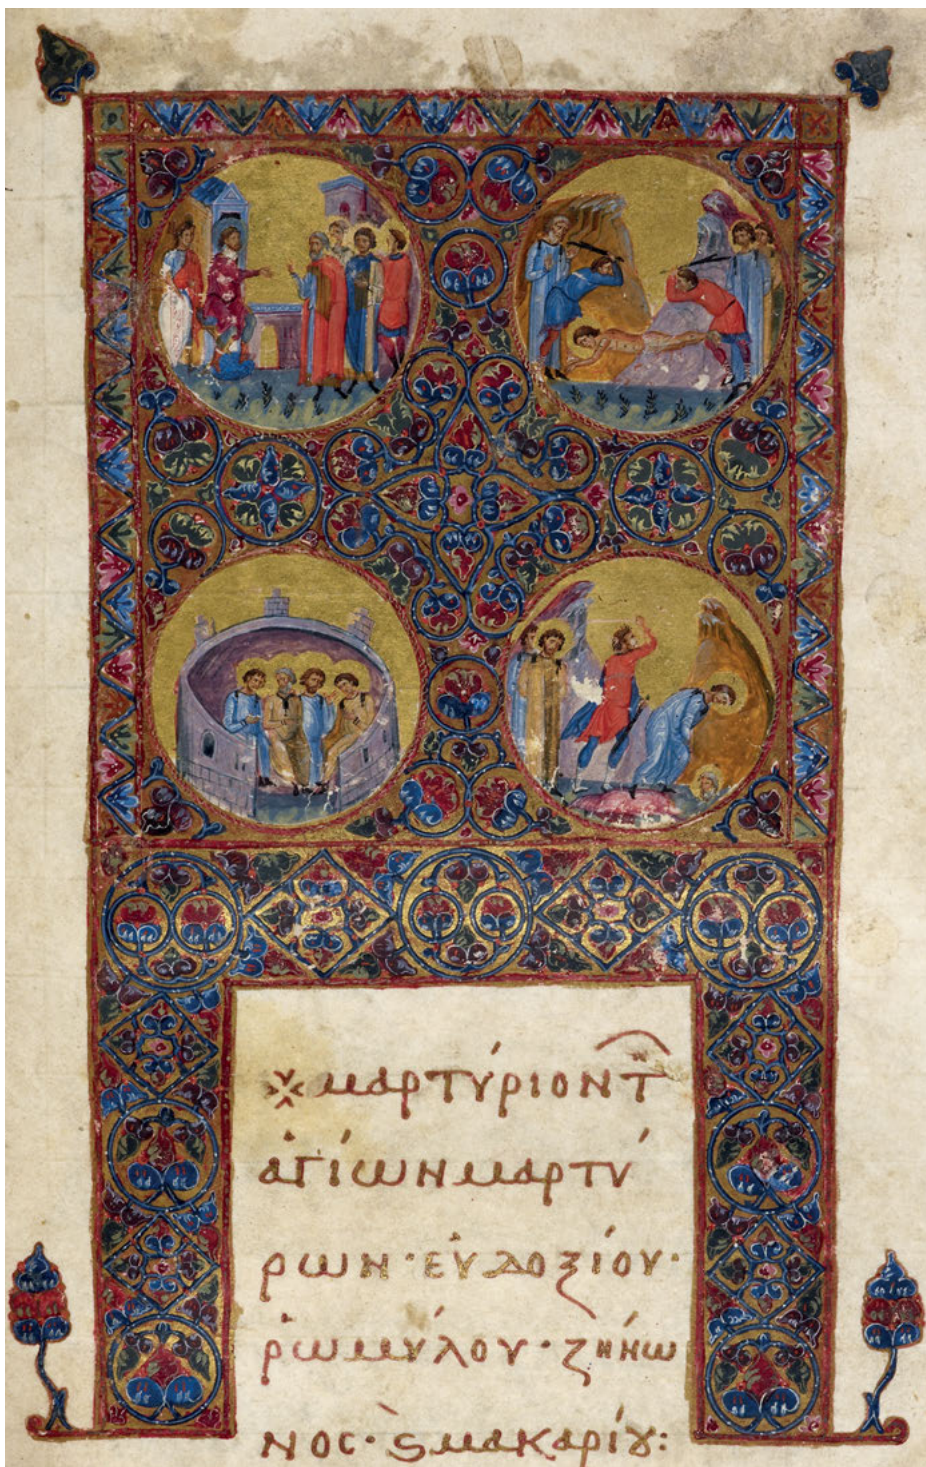 μαρτύριον τῶν
ἁγίων μαρτύ
ρων· εὐδοξίου·
ῥωμύλου· ζήνω
νος· ϛ μακαρίου: